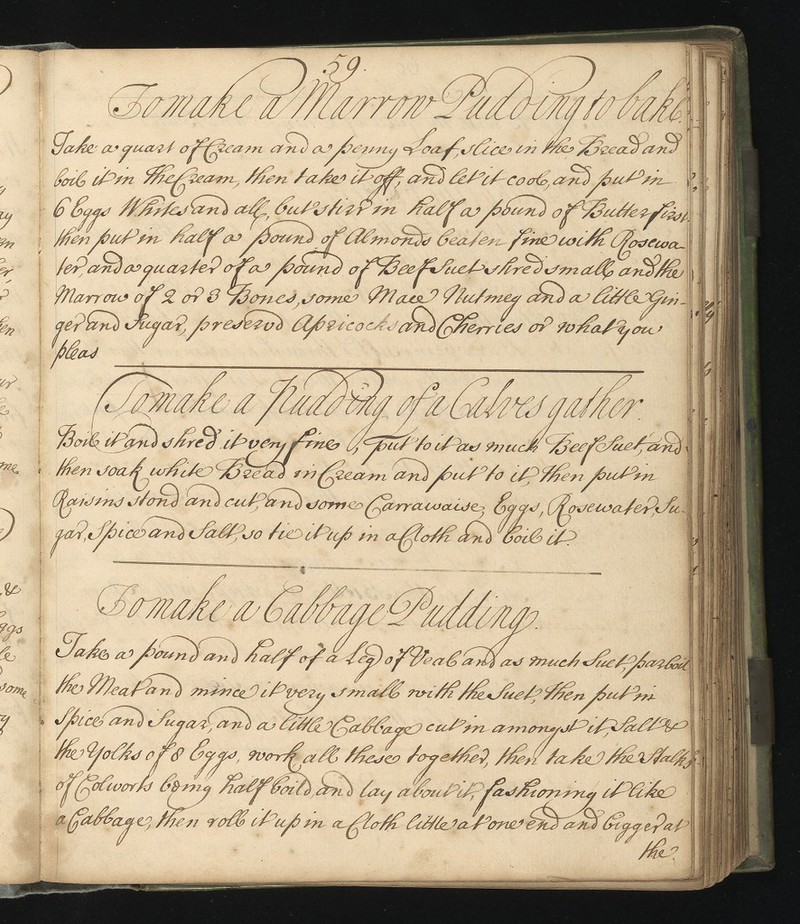 59.
To make a Marrow Pudding to bake.
Take a quart of Cream and a penny Loaf, slice in the Bread and
boil it in the Cream, then take it off, and let it cool, and put in
6 Eggs Whites and all, but stirr in half a pound of Butter first
then put in half a pound of Almonds beaten fine with Rosewa-
ter, and a quarter of a pound of Beef Suet shred small and the
Marrow of 2 or 3 Bones, some Mace Nutmeg and a little Gin-
ger and Sugar, preservd Apricocks and Cherries or what you
pleas
To make a Pudding of a Calves gather.
Boil it and shred it very fine, put to it as much Beef Suet, and
then soak white Bread in Cream and put to it, then put in
Raisins stond and cut, and some Carrawaise, Eggs, Rosewater Su-
gar, Spice and Salt, so tie it up in a Cloth and boil it.
To make a Cabbage Pudding.
Take a pound and half of a Leg of Veal and as much Suet, parboil
the Meat and mince it very small with the Suet, then put in
Spice and Sugar, and a little Cabbage cut in amongst it, Salt &
the Yolks of 8 Eggs, work all these together, then take the Stalks
of Colworts being half boild and lay about it, fashioning it like
a Cabbage, then roll it up in a Cloth little at one end and bigger at
the